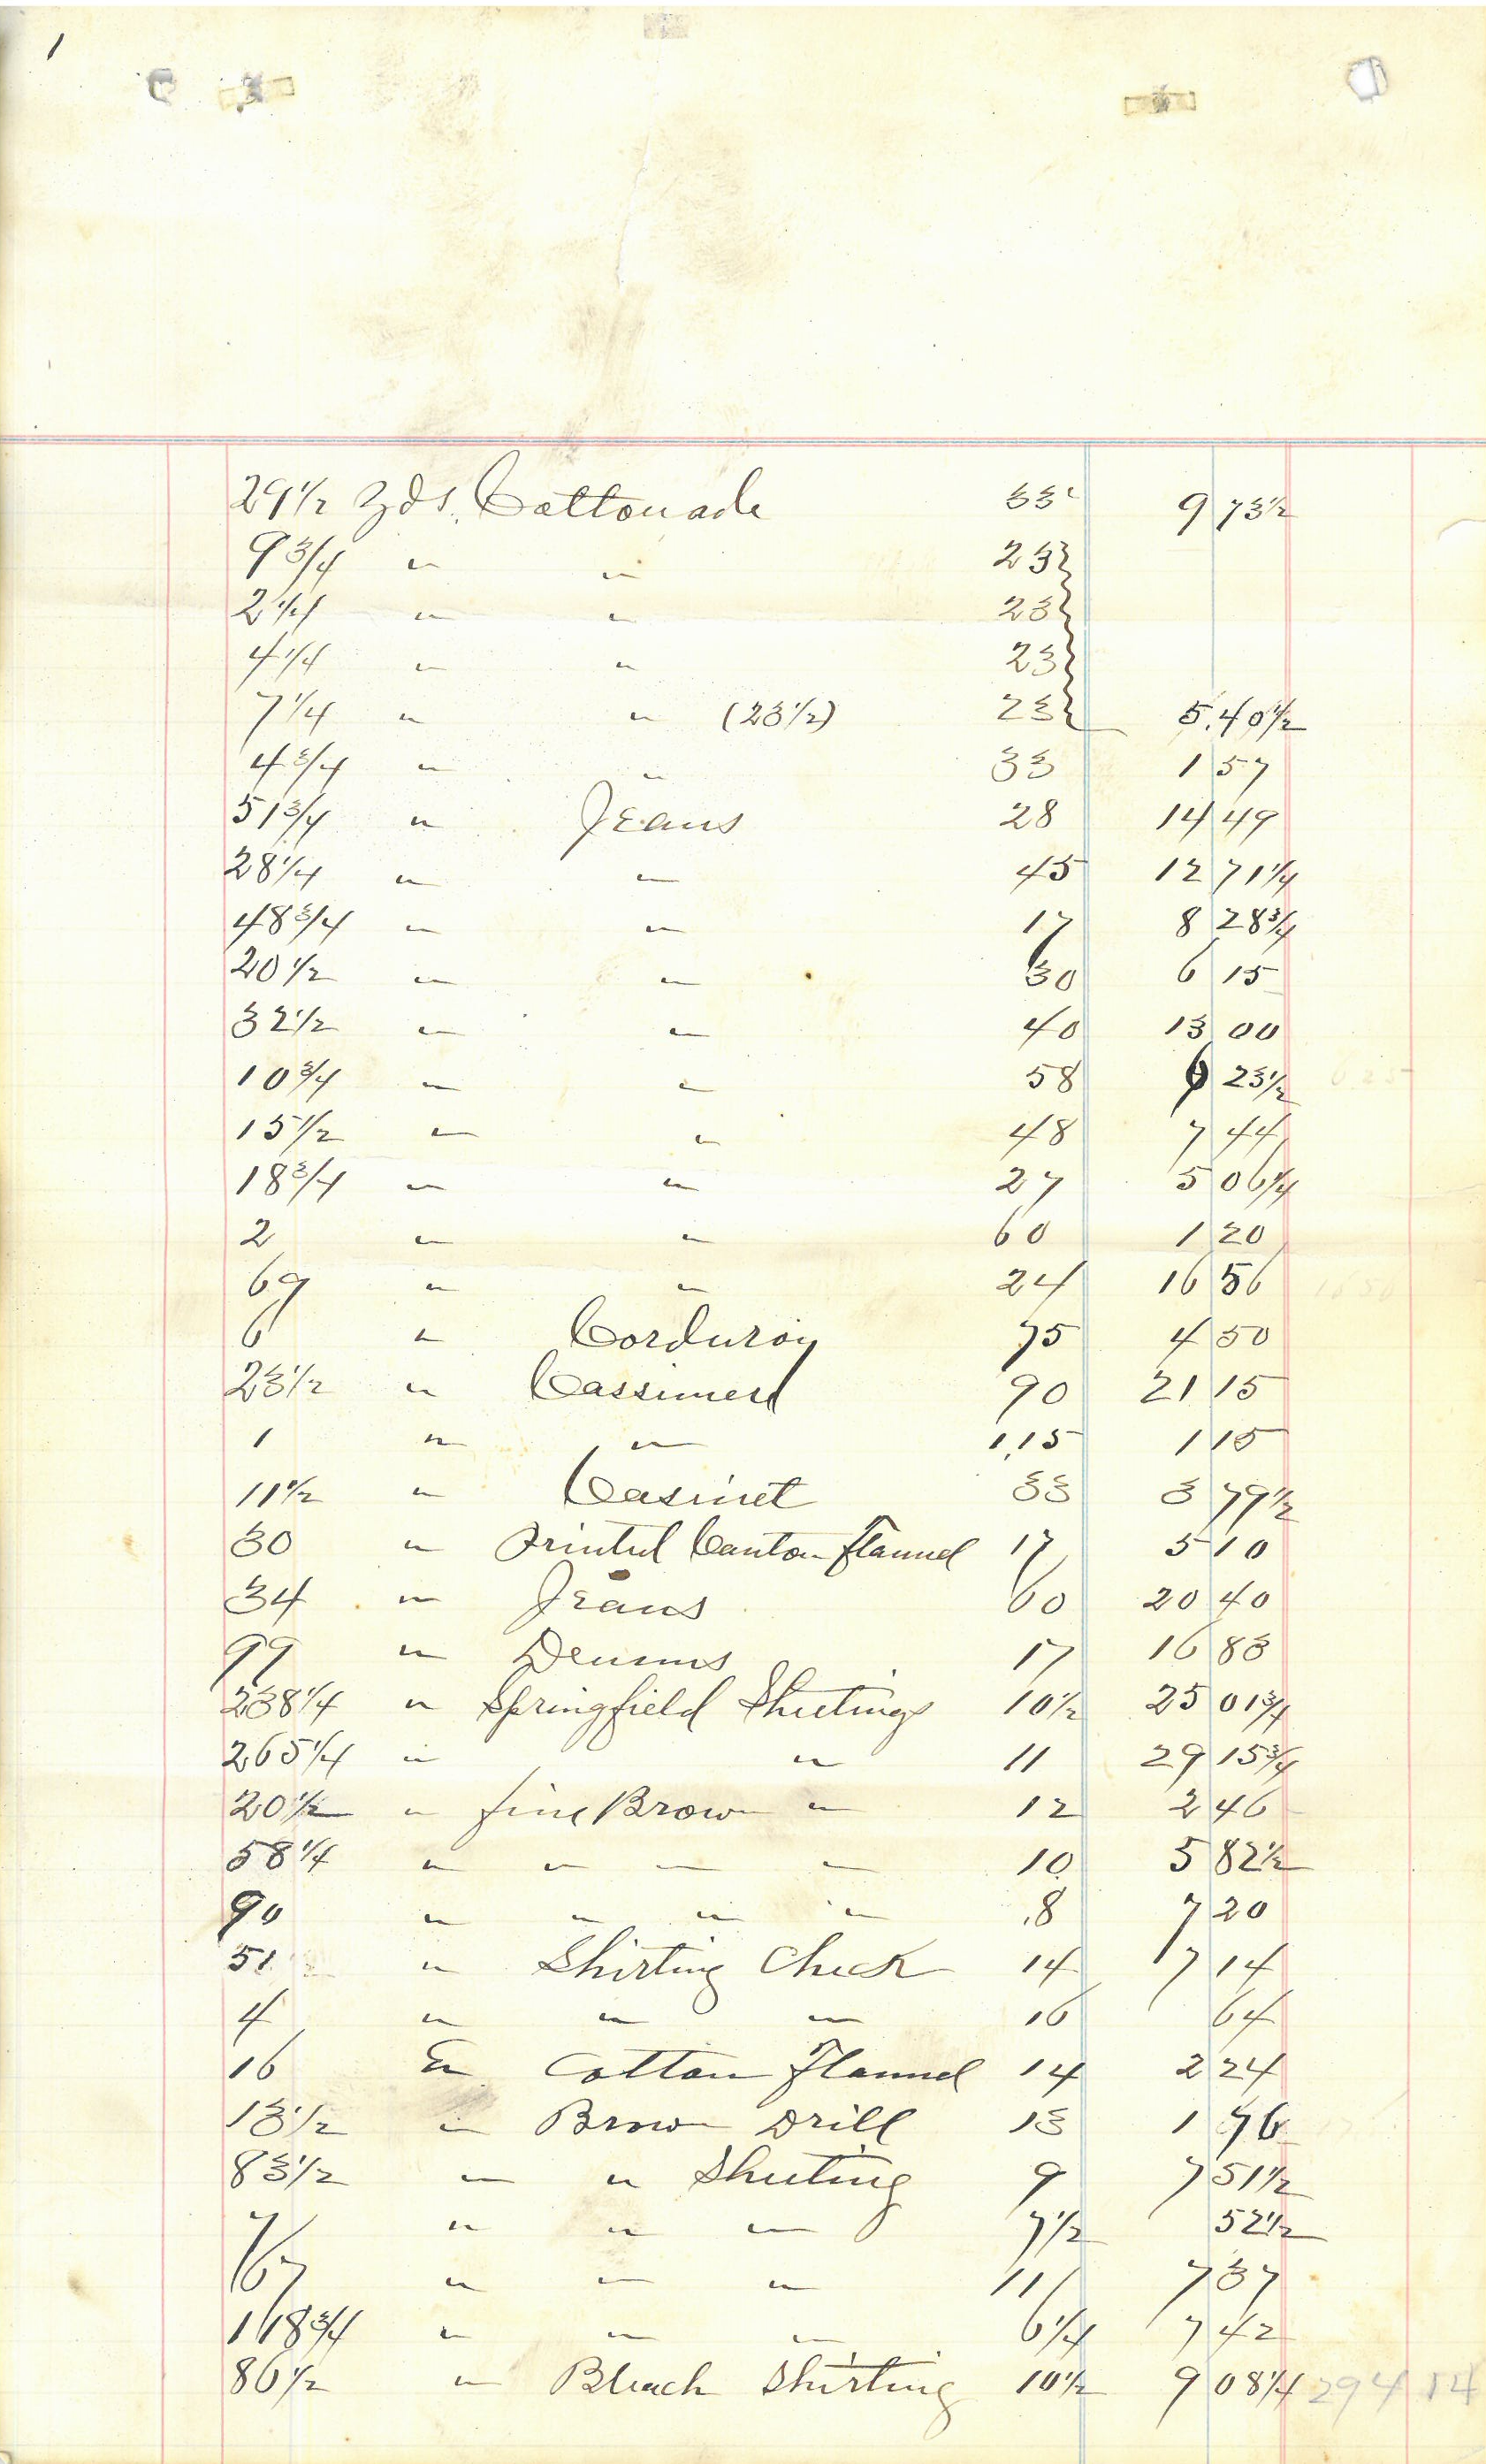 1
29 1/2 Yds. Cottonade 33c 9 73 1/2
9 3/4 " " 23
2 1/4 " " 23
4 1/4 " " 23
7 1/4 " " (23 1/2) 23 5.40 1/2
4 3/4 " " 33 1 57
51 3/4 " Jeans 28 14 49
28 1/4 " " 45 12 71 1/4
48 3/4 " " 17 8 28 3/4
20 1/2 " " 30 6 15
32 1/2 " " 40 13 00
10 3/4 " " 58 6 23 1/2 6 25
15 1/2 " " 48 7 44
18 3/4 " " 27 5 06 1/4
2 " " 60 1 20
69 " " 24 16 56 16 56
6 " Corduroy 75 4 50
23 1/2 " Cassimere 90 21 15
1 " " 1.15 1 15
11 1/2 " Casinet 33 3 79 1/2
30 " Printed Canton flannel 17 5 10
34 " Jeans 60 20 40
99 " Denims 17 16 83
238 1/4 " Springfield Sheetings 10 1/2 25 01 3/4
265 1/4 " " 11 29 15 3/4
20 1/2 " fine Brown " 12 2 46
58 1/4 " " " " 10 5 82 1/2
90 " " " " .8 7 20
51 " Shirting Check 14 7 14
4 " " " 16 64
16 " Cotton Flannel 14 2 24
13 1/2 " Brown Drill 13 1 76
83 1/2 " " Sheeting 9 7 51 1/2
7 " " " 7 1/2 52 1/2
67 " " " 11 7 37
118 3/4 " " " 6 1/4 7 42
86 1/2 " Bleach Shirting 10 1/2 9 08 1/4 294 14